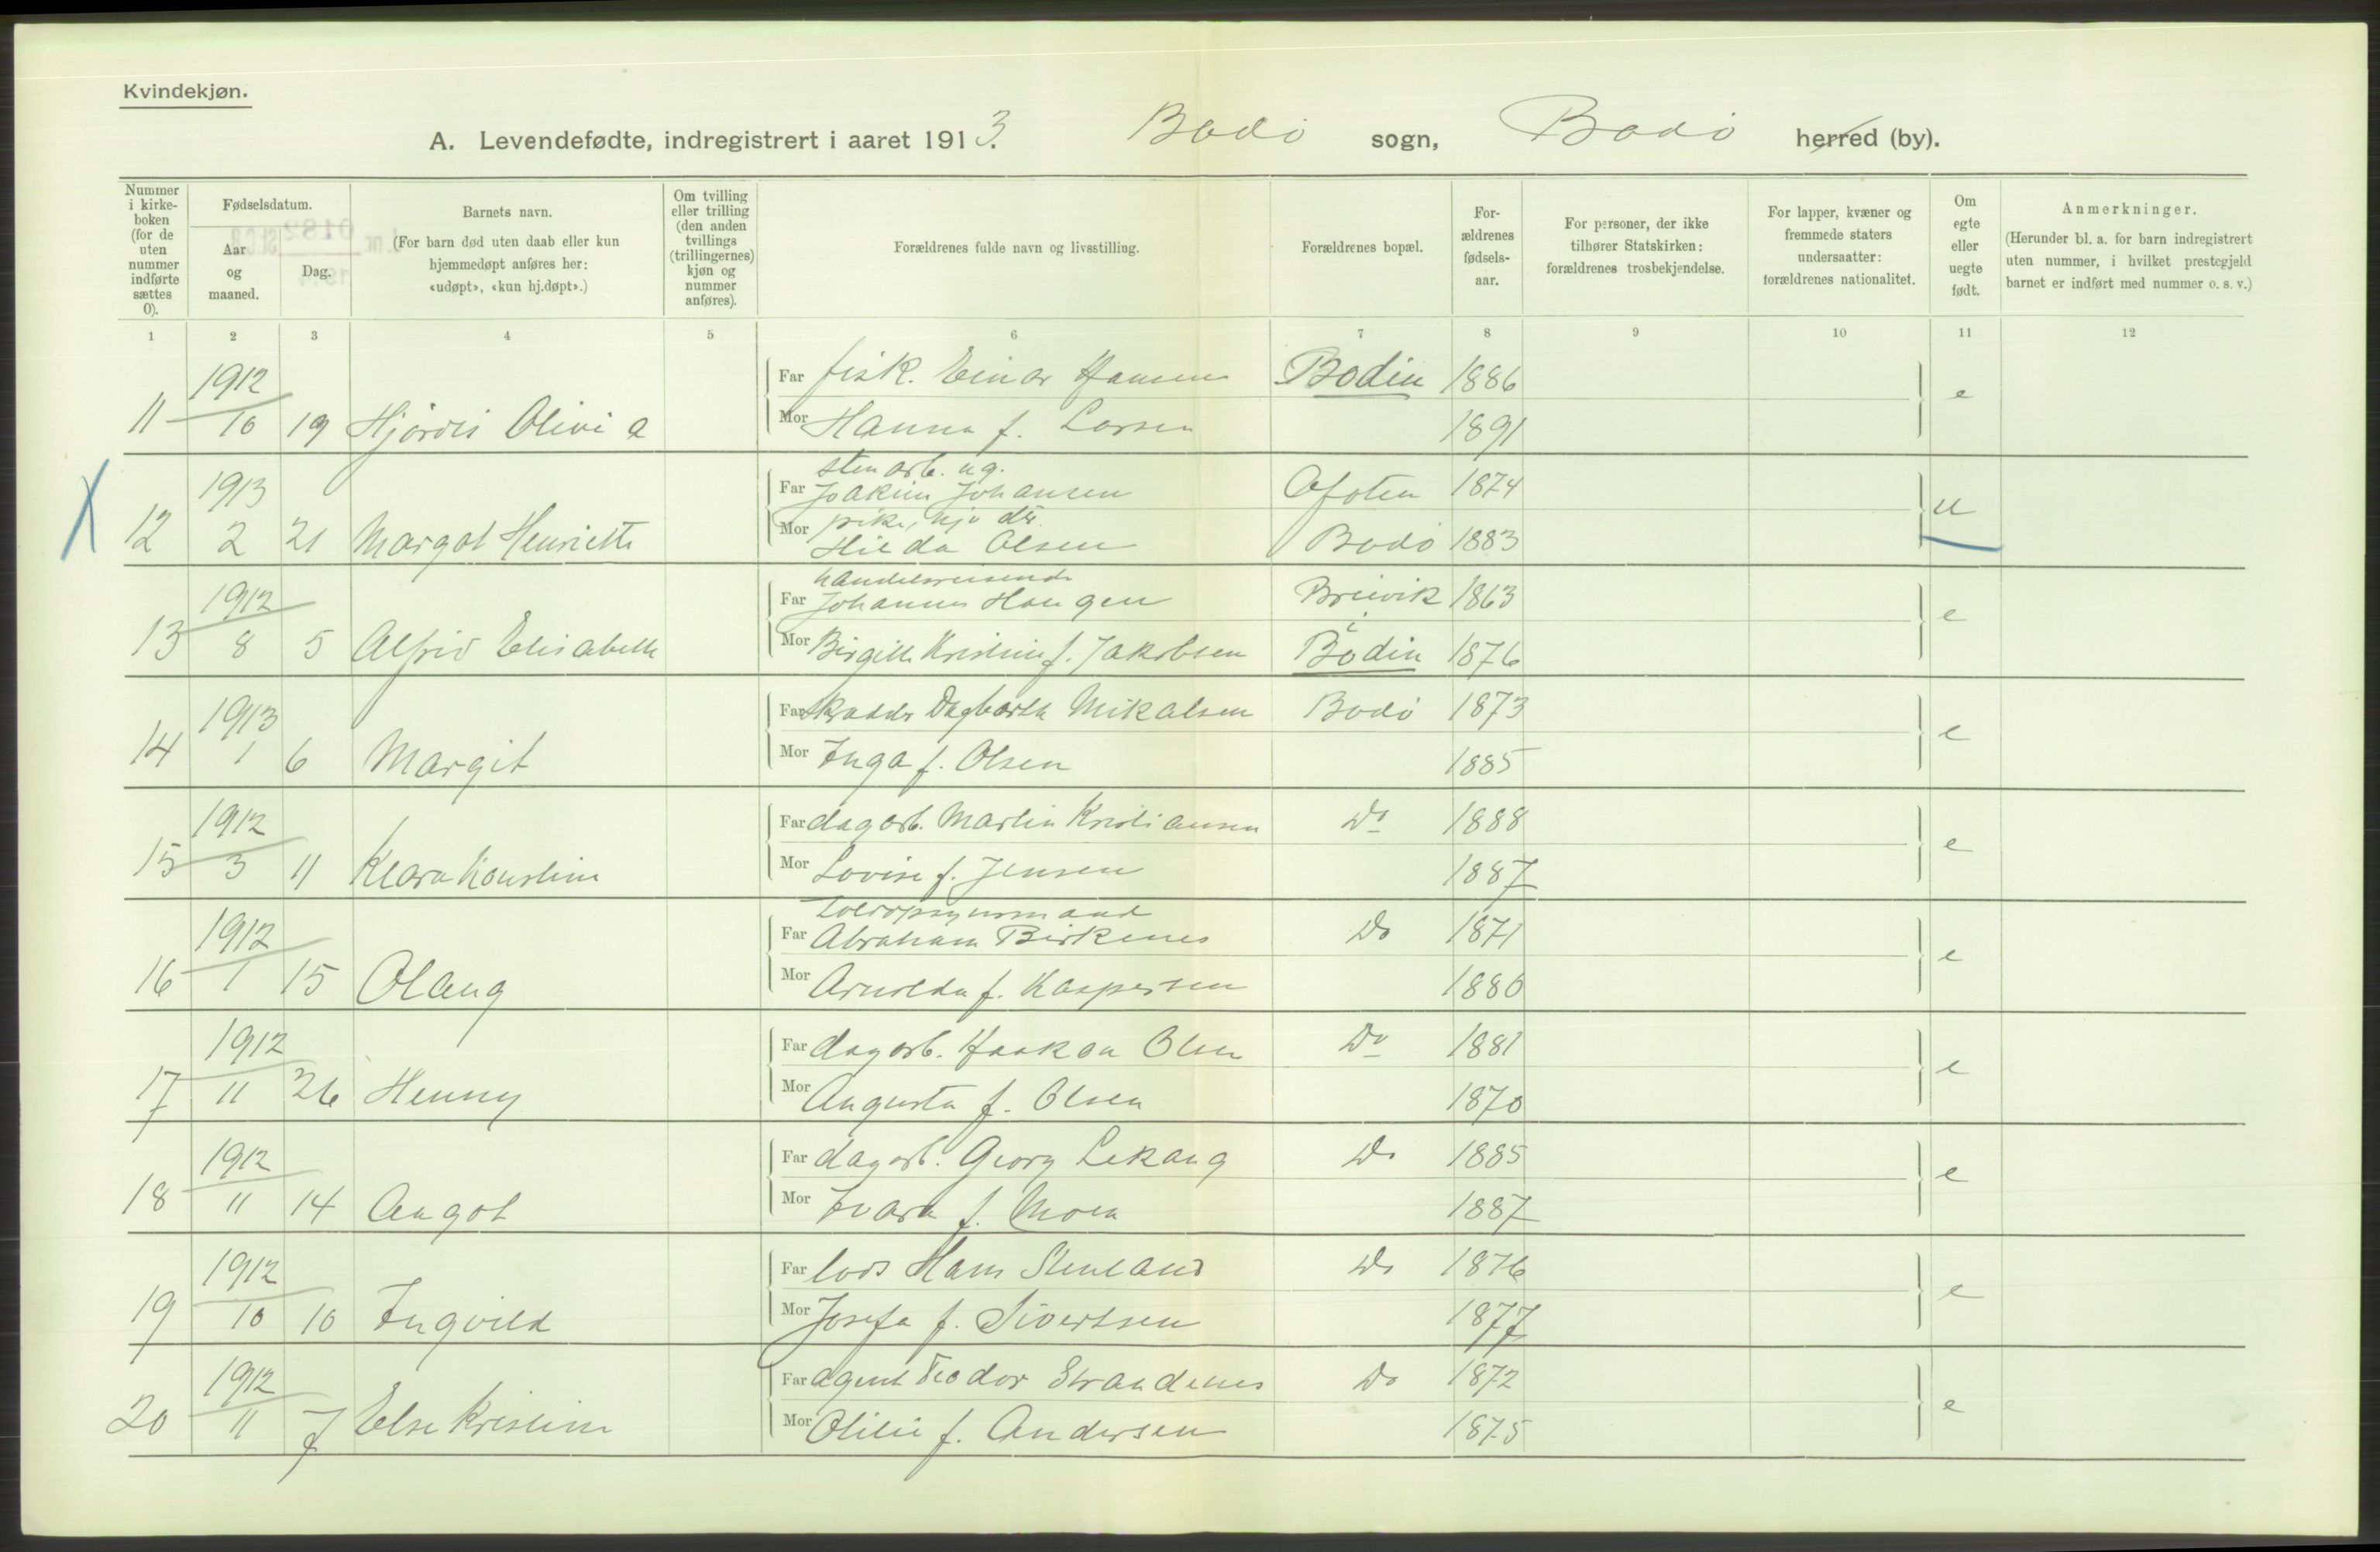 Kvindekjøn.
A. Levendefødte, indregistrert i aaret 1913. Bodø sogn, Bodø herred (by).
Nummer i kirke-boken (for de uten nummer indførte sættes 0).
Fødselsdatum.
Aar og maaned.
Dag.
Barnets navn.
(For barn død uten daab eller kun hjemmedøpt anføres her: «udøpt», «kun hj.døpt».)
Om tvilling eller trilling (den anden tvillings (trillingernes) kjøn og nummer anføres).
Forældrenes fulde navn og livsstilling.
Forældrenes bopæl.
For-ældrenes fødsels-aar.
For personer, der ikke tilhører Statskirken: forældrenes trosbekjendelse.
For lapper, kvæner og fremmede staters undersaatter: forældrenes nationalitet.
Om egte eller uegte født.
Anmerkninger.
(Herunder bl. a. for barn indregistrert uten nummer, i hvilket prestegjeld barnet er indført med nummer o. s. v.)
1 2 3 4 5 6 7 8 9 10 11 12
1912 Far fisk. Einar Hansen Bodin 1886 e
11 10 19 Hjørdis Olivia Mor Hanna f. Larsen 1891
stenarb. ug.
1913 Far Joakim Johansen Ofoten 1874 u
pike,
12 2 21 Margot Henriette Mor Hilda Olsen Bodø 1883
handelsreisende
1912 Far Johannes Haugen Breivik 1863 e
i
13 8 5 Alfrid Elisabeth Mor Birgitte Kristine f. Jakobsen Bodin 1876
1913 Far Skrædder Dagbarth Mikalsen Bodø 1873 e
14 1 6 Margit Mor Inga f. Olsen 1885
1912 Far dagarb. Martin Kristiansen Do 1888 e
15 3 11 Klara Konstine Mor Lovise f. Jensen 1887
toldopsynsmand
1912 Far Abraham Birkenes Do 1871 e
16 1 15 Olaug Mor Arnolda f. Kaspersen 1880
1912 Far dagarb. Haakon Olsen Do 1881 e
17 11 26 Henny Mor Augusta f. Olsen 1870
1912 Far dagarb. Georg Lekang Do 1885 e
18 11 14 Aagot Mor Ivara f. Moen 1887
1912 Far lods Hans Stenland Do 1876 e
19 10 10 Ingvild Mor Josefa f. Sivertsen 1877
1912 Far agent Teodor Strandenes Do 1872 e
20 11 7 Else Kristine Mor Otilie f. Andersen 1875